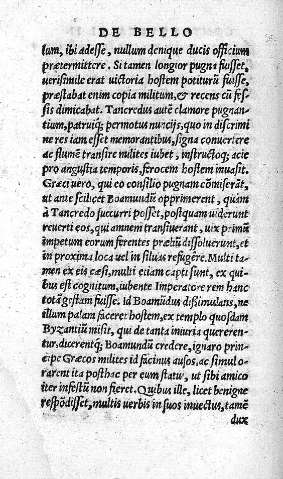 DE BELLO
lum, ibi adesse, nullum denique ducis officium
prætermittere. Si tamen longior pugna fuisset,
uerisimile erat uictoria hostem potiturũ fuisse,
præstabat enim copia militum, & recens cũ fes-
sis dimicabat. Tancredus autẽ clamore pugnan-
tium, patruiq; permotus nuncijs, quo in discrimi
ne res iam esset memorantibus, signa conuertere
ac flumẽ transire milites iubet, instructoq; acie
pro angustia temporis, ferocem hostem inuasit.
Græci uero, qui eo consilio pugnam cõmiserãt,
ut ante scilicet Boamundũ opprimerent, quàm
à Tancredo succurri posset, postquam uiderunt
reuerti eos, qui amnem transiuerant, uix primũ
impetum eorum ferentes præliũ dissoluerunt, et
in proxima loca uel in siluas refugêre. Multi ta-
men ex eis cæsi, multi etiam capti sunt, ex qui-
bus est cognitum, iubente Imperatore rem hanc
totã gestam fuisse. id Boamũdus dissimulans, ne
illum palam faceret hostem, ex templo quosdam
Byzantiũ misit, qui de tanta iniuria quereren-
tur, dicerentq; Boamundũ credere, ignaro prin-
cipe Græcos milites id facinus ausos, ac simul o-
rarent ita posthac per eum statui, ut sibi amico
iter infestũ non fieret. Quibus ille, licet benigne
respõdisset, multis uerbis in suos inuectus, tamẽ
dux